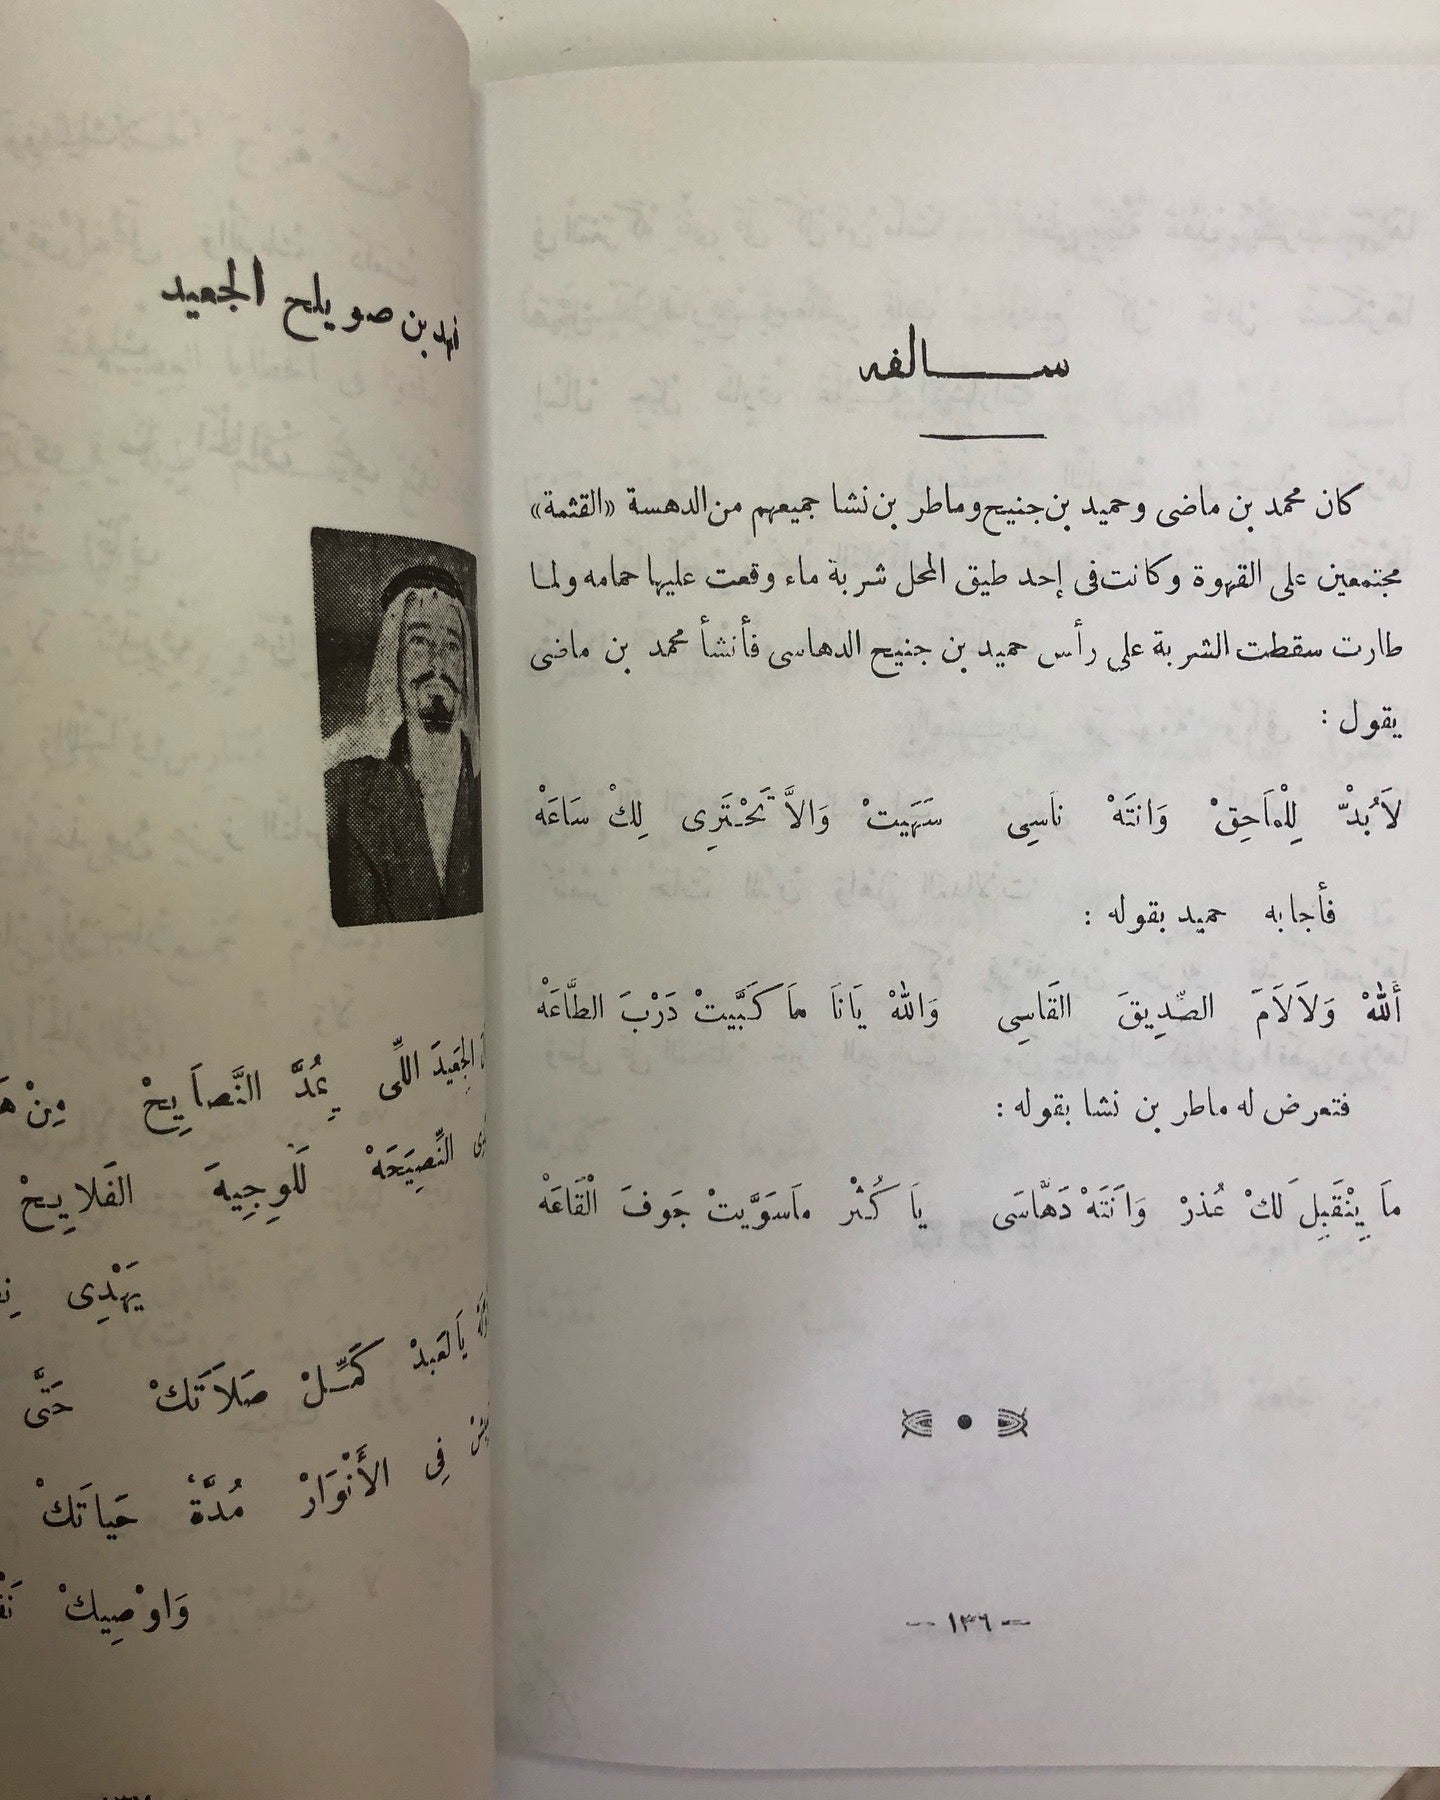 سالفه
كان محمد بن ماضى وحميد بن جنيح وماطر بن نشا جميعهم من الدهسة «القثمة»
مجتمعين على القهوة وكانت فى إحد طيق المحل شربة ماء وقعت عليها حمامه ولما
طارت سقطت الشربة على رأس حميد بن جنيح الدهاسى فأنشأ محمد بن ماضى
يقول :
لاَبُدّْ لِلْمَاحِقْ وَانتَهْ ناَسِي سَهَيتْ وَالاَّ تَحْتَرِى لِكْ سَاعَهْ
فأجابه حميد بقوله :
أَللهْ وَلاَلاَمَ الصِّدِيقَ القَاسِي وَاللهْ يَانَا مَا كَبَّيتْ دَرْبَ الطَّاعَهْ
فتعرض له ماطر بن نشا بقوله :
مَا يِنْقَبِل لَكْ عُذرْ وَانَتَهْ دَهَّاسَى يَا كُثْر مَاسَوَّيتْ جَوفَ الْقَاعَهْ
— ١٣٦ —
بن صويلح الجعيد
الجِعَيدَ اللِّى عِدَّ النَّصاَيِحْ مِنْ
النِّصِيَحَهْ لَلوِجِيهَ الفَلاَيِحْ
يَهْدِى
يَالعَبدْ كَمِّلْ صَلاَتَكْ حَتَّى
فِى الأَنْوَارْ مُدَّةْ حَياتَكْ
وَاوْصِيكْ